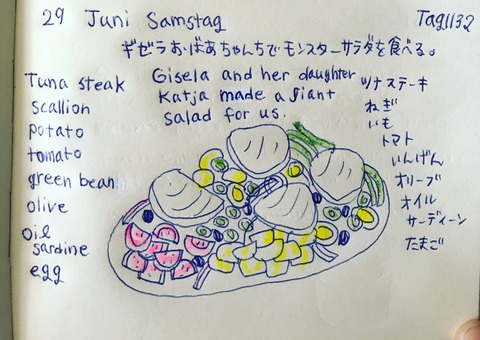 29 Juni Samstag
Tag1132
ギゼラおばあちゃんちでモンスターサラダを食べる。
Gisela and her daughter
Katja made a giant
salad for us.
Tuna steak
scallion
potato
tomato
green bean
olive
oil
sardine
egg
ツナステーキ
ねぎ
いも
トマト
いんげん
オリーブ
オイル
サーディーン
たまご